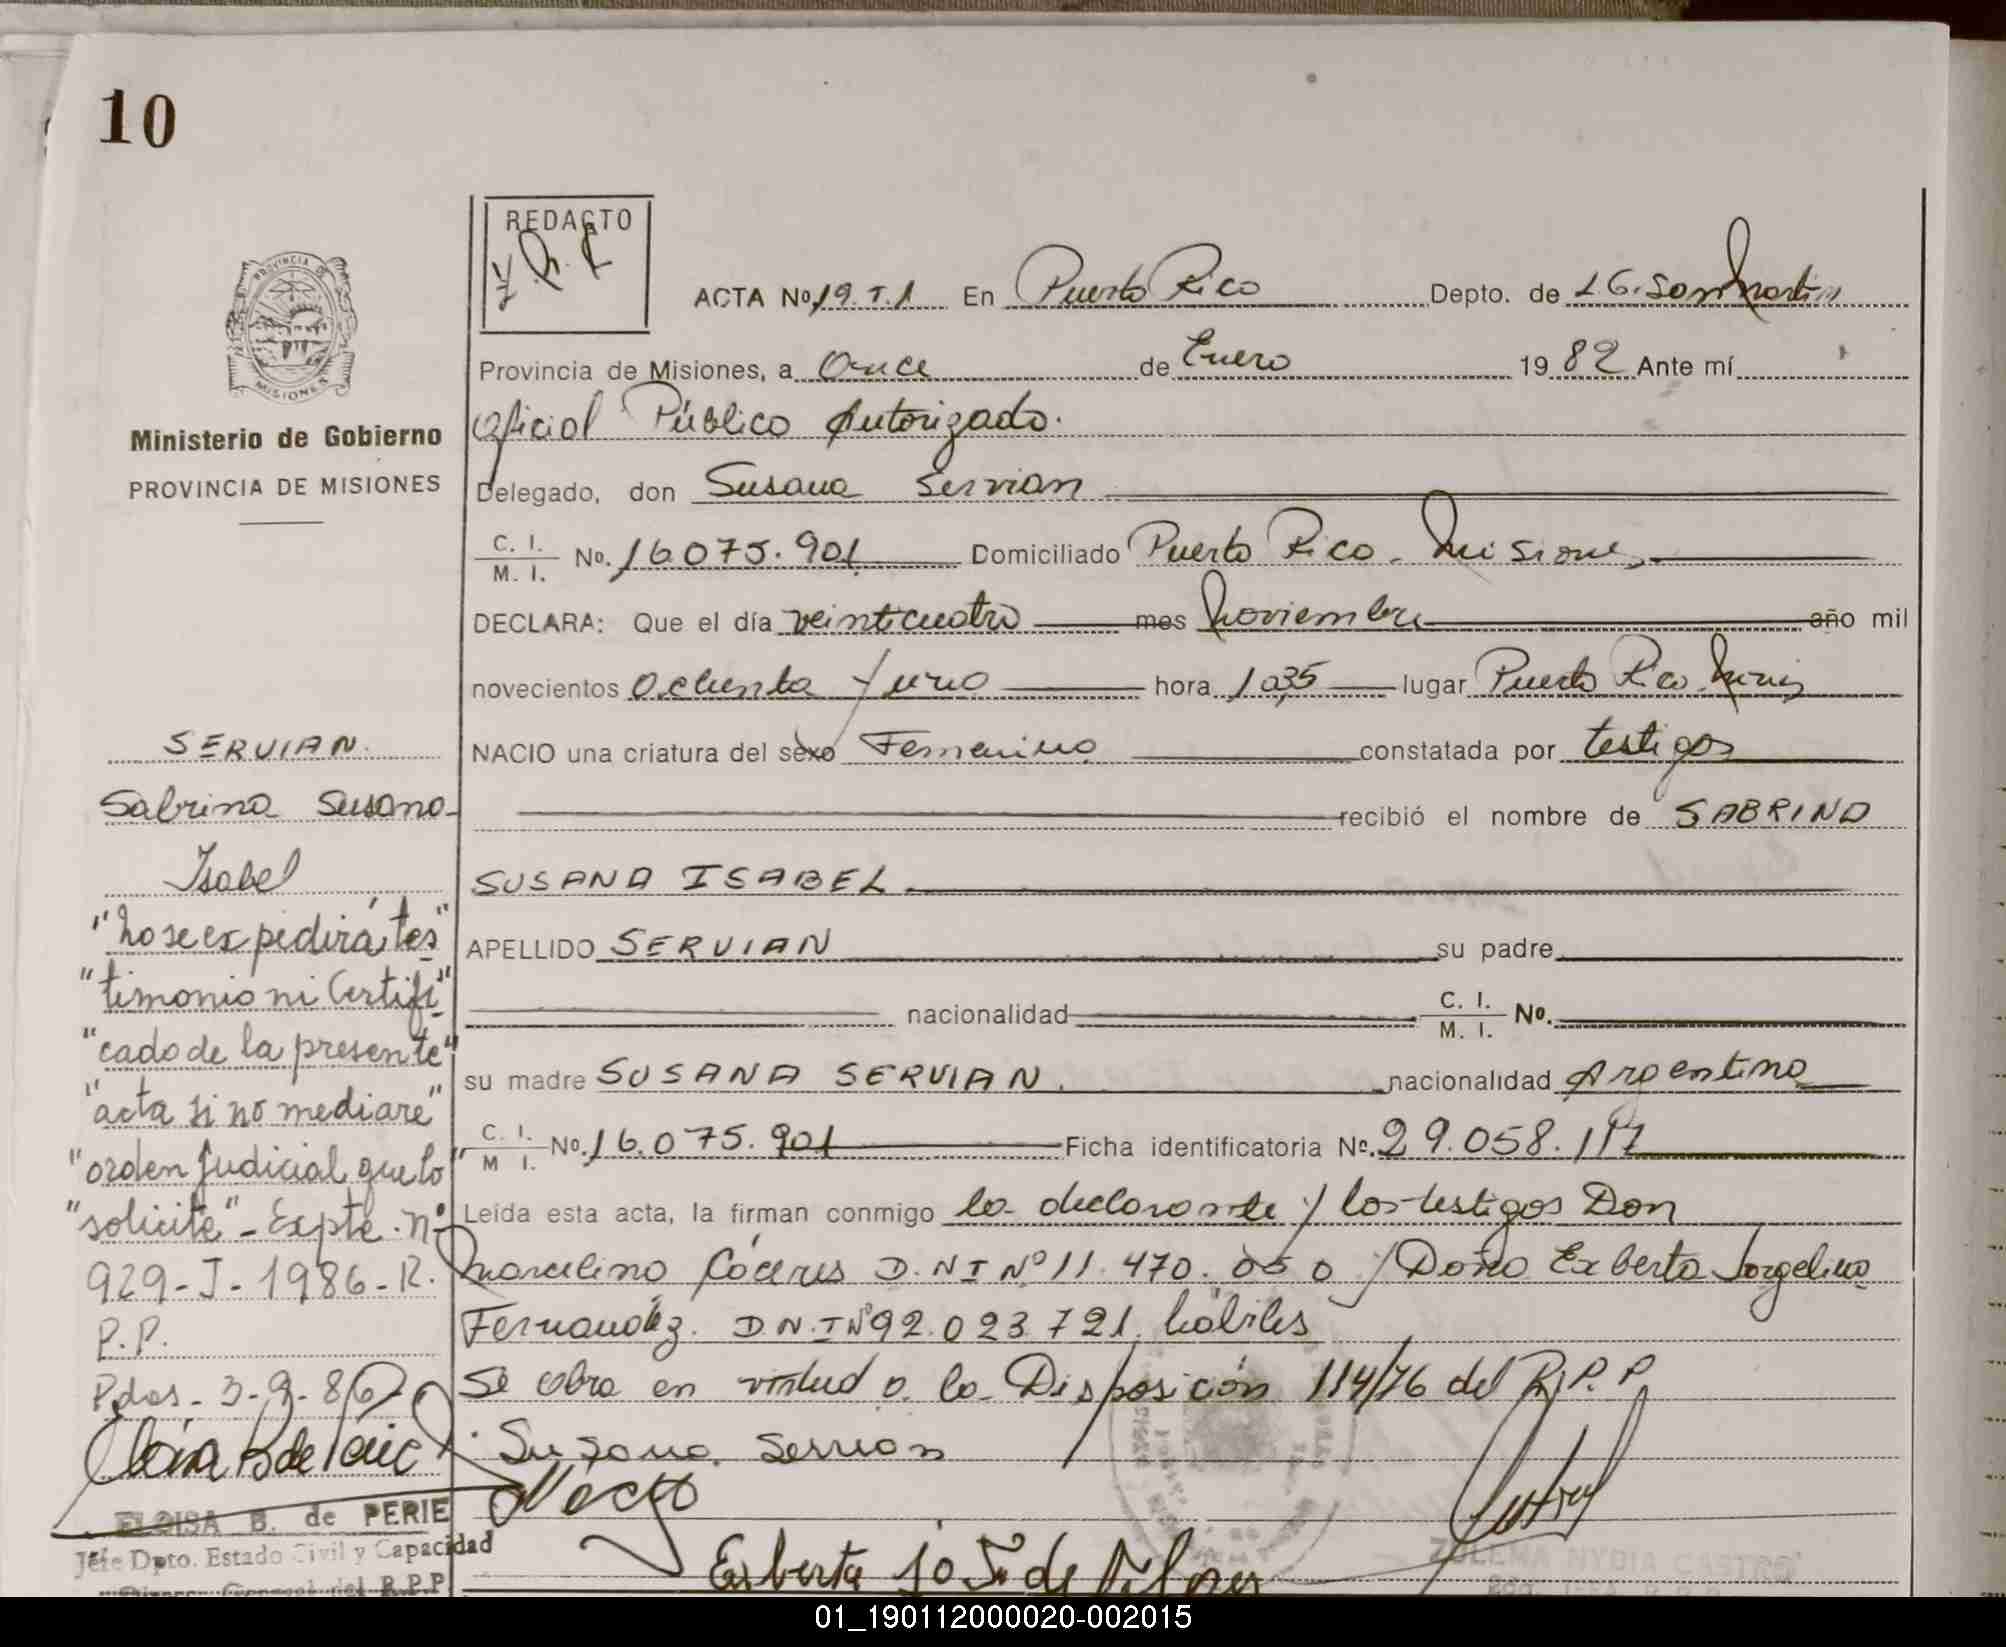 10
REDACTO
ACTA Nº 19. T. 1 En Puerto Rico Depto. de L G. San Martin
Provincia de Misiones, a Once de Enero 1982 Ante mí
Oficial Público Autorizado.
Delegado, don Susana Servian
C. I. / M. I. No. 16.075.901 Domiciliado Puerto Rico - Misiones
DECLARA: Que el día veinticuatro mes Noviembre año mil
novecientos ochenta y uno hora 10,35 lugar Puerto Rico Mnes
NACIO una criatura del sexo Femenino constatada por testigos
recibió el nombre de SABRINA
SUSANA ISABEL
APELLIDO SERVIAN su padre
nacionalidad C. I. / M. I. No.
su madre SUSANA SERVIAN. nacionalidad Argentina
C. I. / M. I. No. 16.075.901 Ficha identificatoria No. 29.058.117
Leída esta acta, la firman conmigo la declarante y los testigos Don
Marcelino Cáceres D.N I Nº 11.470.050 y Doña Exberta Jorgelina
Fernandez. D.N.I Nº 92.023.721, hábiles
Se cobra en virtud a la Disposición 114/76 del R.P.P
Susana Servian
Exberta
ZULEMA NYDIA CASTRO
PROVINCIA DE
MISIONES
Ministerio de Gobierno
PROVINCIA DE MISIONES
SERVIAN.
Sabrina Susana
Isabel
"No se expedirá tes"
"timonio ni Certifi"
"cado de la presente"
"acta si no mediare"
"orden judicial que lo"
"solicite" - Expte. nº
929-J-1986-R.
P.P.
Pdas - 3-9-86
ELOISA B. de PERIE
Jefe Dpto. Estado Civil y Capacidad
Direcc. General del R.P.P
01_190112000020-002015